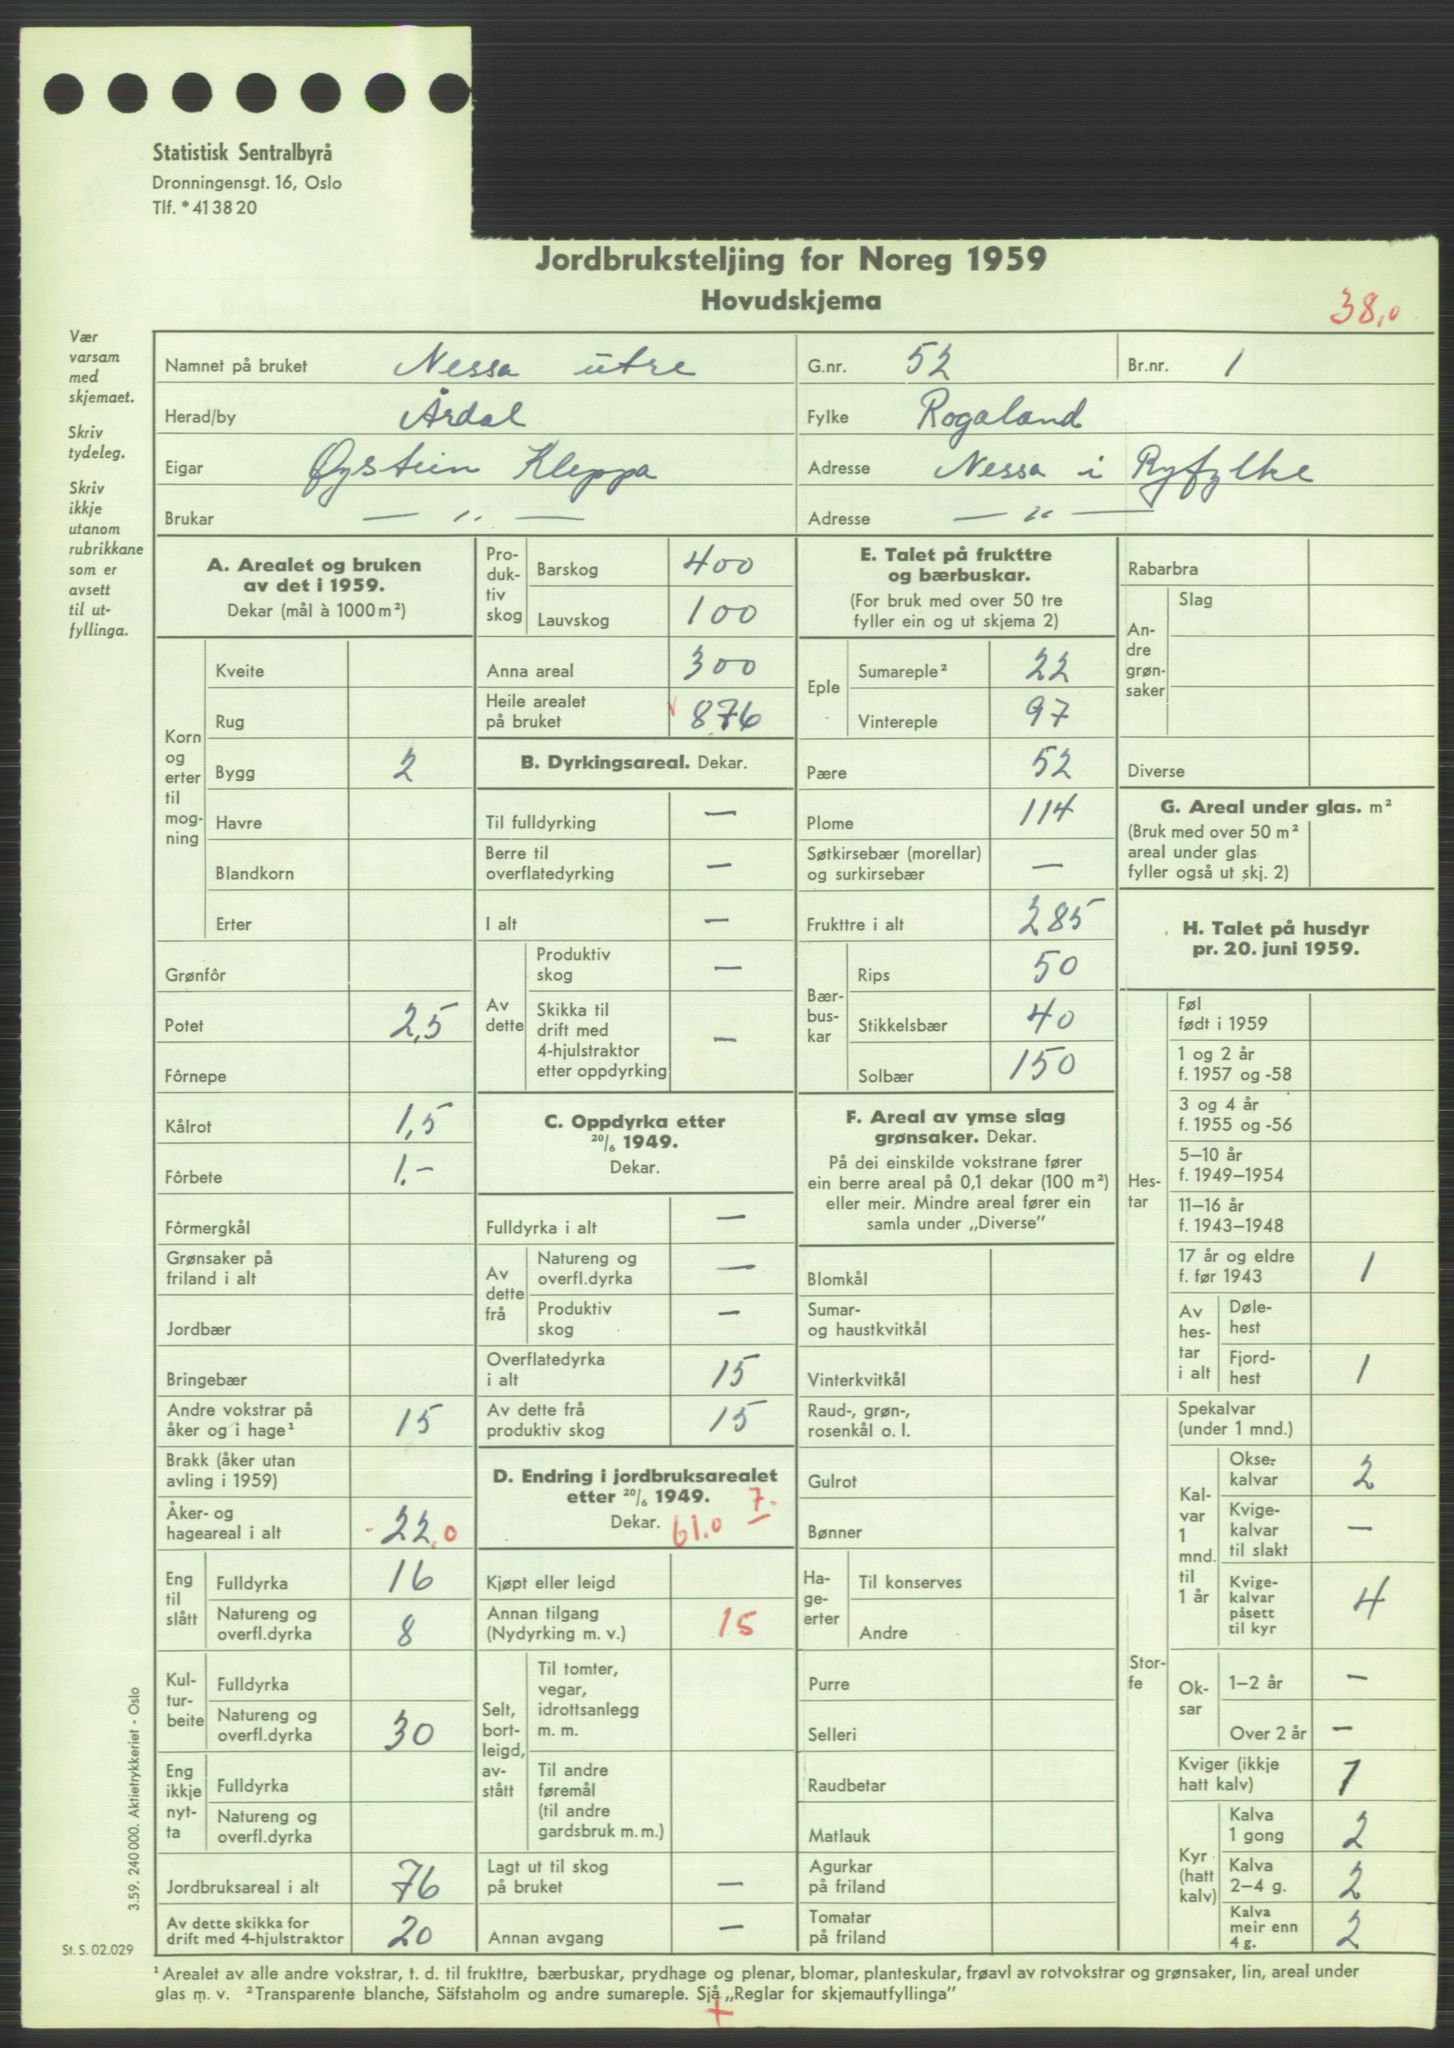 Statistisk Sentralbyrå
Dronningensgt. 16, Oslo
Tlf. * 41 38 20
Jordbruksteljing for Noreg 1959
Hovudskjema
38,0
Vær
varsam
med
skjemaet.
Skriv
tydeleg.
Skriv
ikkje
utanom
rubrikkane
som er
avsett
til ut-
fyllinga.
Namnet på bruket Nessa utre G.nr. 52 Br.nr. 1
Herad/by Årdal Fylke Rogaland
Eigar Øystein Kleppa Adresse Nessa i Ryfylke
Brukar — " — Adresse — " —
A. Arealet og bruken
av det i 1959.
Dekar (mål à 1000 m²)
Korn
og
erter
til
mog-
ning
Kveite
Rug
Bygg 2
Havre
Blandkorn
Erter
Grønfôr
Potet 2,5
Fôrnepe
Kålrot 1,5
Fôrbete 1.-
Fôrmergkål
Grønsaker på
friland i alt
Jordbær
Bringebær
Andre vokstrar på
åker og i hage¹ 15
Brakk (åker utan
avling i 1959)
Åker- og
hageareal i alt 22,0
Eng
til
slått
Fulldyrka 16
Natureng og
overfl.dyrka 8
Kul-
tur-
beite
Fulldyrka
Natureng og
overfl.dyrka 30
Eng
ikkje
nyt-
ta
Fulldyrka
Natureng og
overfl.dyrka
Jordbruksareal i alt 76
Av dette skikka for
drift med 4-hjulstraktor 20
Pro-
duk-
tiv
skog
Barskog 400
Lauvskog 100
Anna areal 300
Heile arealet
på bruket 876
B. Dyrkingsareal. Dekar.
Til fulldyrking —
Berre til
overflatedyrking —
I alt —
Av
dette
Produktiv
skog —
Skikka til
drift med
4-hjulstraktor
etter oppdyrking —
C. Oppdyrka etter
20/6 1949.
Dekar.
Fulldyrka i alt —
Av
dette
frå
Natureng og
overfl.dyrka —
Produktiv
skog —
Overflatedyrka
i alt 15
Av dette frå
produktiv skog 15
D. Endring i jordbruksarealet
etter 20/6 1949. 7.
Dekar. 61.0
Kjøpt eller leigd
Annan tilgang
(Nydyrking m. v.) 15
Selt,
bort-
leigd,
av-
stått
Til tomter,
vegar,
idrottsanlegg
m. m.
Til andre
føremål
(til andre
gardsbruk m. m.)
Lagt ut til skog
på bruket —
Annan avgang —
E. Talet på frukttre
og bærbuskar.
(For bruk med over 50 tre
fyller ein og ut skjema 2)
Eple
Sumareple² 22
Vintereple 97
Pære 52
Plome 114
Søtkirsebær (morellar)
og surkirsebær —
Frukttre i alt 285
Bær-
bus-
kar
Rips 50
Stikkelsbær 40
Solbær 150
F. Areal av ymse slag
grønsaker. Dekar.
På dei einskilde vokstrane fører
ein berre areal på 0,1 dekar (100 m²)
eller meir. Mindre areal fører ein
samla under „Diverse”
Blomkål
Sumar-
og haustkvitkål
Vinterkvitkål
Raud-, grøn-,
rosenkål o. l.
Gulrot
Bønner
Ha-
ge-
erter
Til konserves
Andre
Purre
Selleri
Raudbetar
Matlauk
Agurkar
på friland
Tomatar
på friland
Rabarbra
An-
dre
grøn-
saker
Slag
Diverse
G. Areal under glas. m²
(Bruk med over 50 m²
areal under glas
fyller også ut skj. 2)
H. Talet på husdyr
pr. 20. juni 1959.
Hes-
tar
Føl
født i 1959
1 og 2 år
f. 1957 og -58
3 og 4 år
f. 1955 og -56
5–10 år
f. 1949–1954
11–16 år
f. 1943–1948
17 år og eldre
f. før 1943 1
Av
hes-
tar
i alt
Døle-
hest
Fjord-
hest 1
Stor-
fe
Spekalvar
(under 1 mnd.)
Kal-
var
1
mnd.
til
1 år
Okse-
kalvar 2
Kvige-
kalvar
til slakt —
Kvige-
kalvar
påsett
til kyr 4
Ok-
sar
1–2 år —
Over 2 år —
Kviger (ikkje
hatt kalv) 1
Kyr
(hatt
kalv)
Kalva
1 gong 2
Kalva
2–4 g. 2
Kalva
meir enn
4 g. 2
3.59. 240 000. Aktietrykkeriet - Oslo
St. S. 02.029
¹ Arealet av alle andre vokstrar, t. d. til frukttre, bærbuskar, prydhage og plenar, blomar, planteskular, frøavl av rotvokstrar og grønsaker, lin, areal under
glas m. v. ² Transparente blanche, Säfstaholm og andre sumareple. Sjå „Reglar for skjemautfyllinga”
+